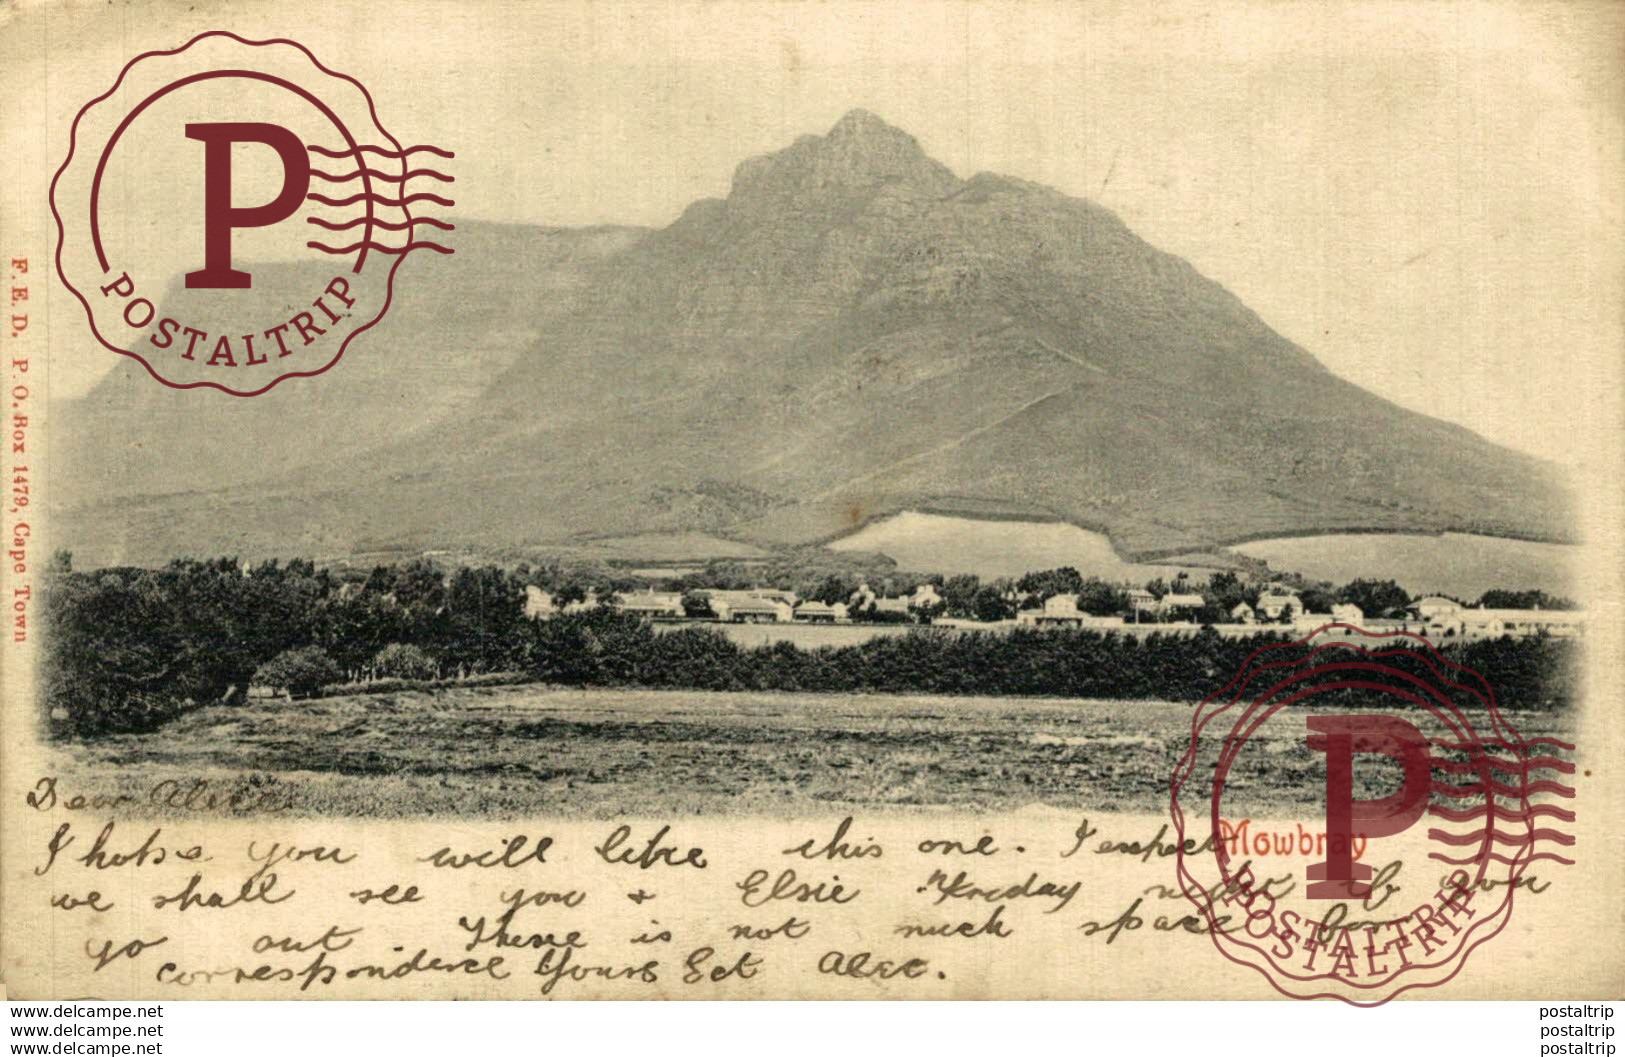 P
POSTALTRIP
F. E. D. P. O. Box 1479, Cape Town
Mowbray
Dear
I hope you will like this one. I expect
we shall see you & Elsie Friday night if you
go out. There is not much space for
correspondence Yours Ect Alec.
P
POSTALTRIP
POSTALTRIP
www.delcampe.net
www.delcampe.net
www.delcampe.net
postaltrip
postaltrip
postaltrip